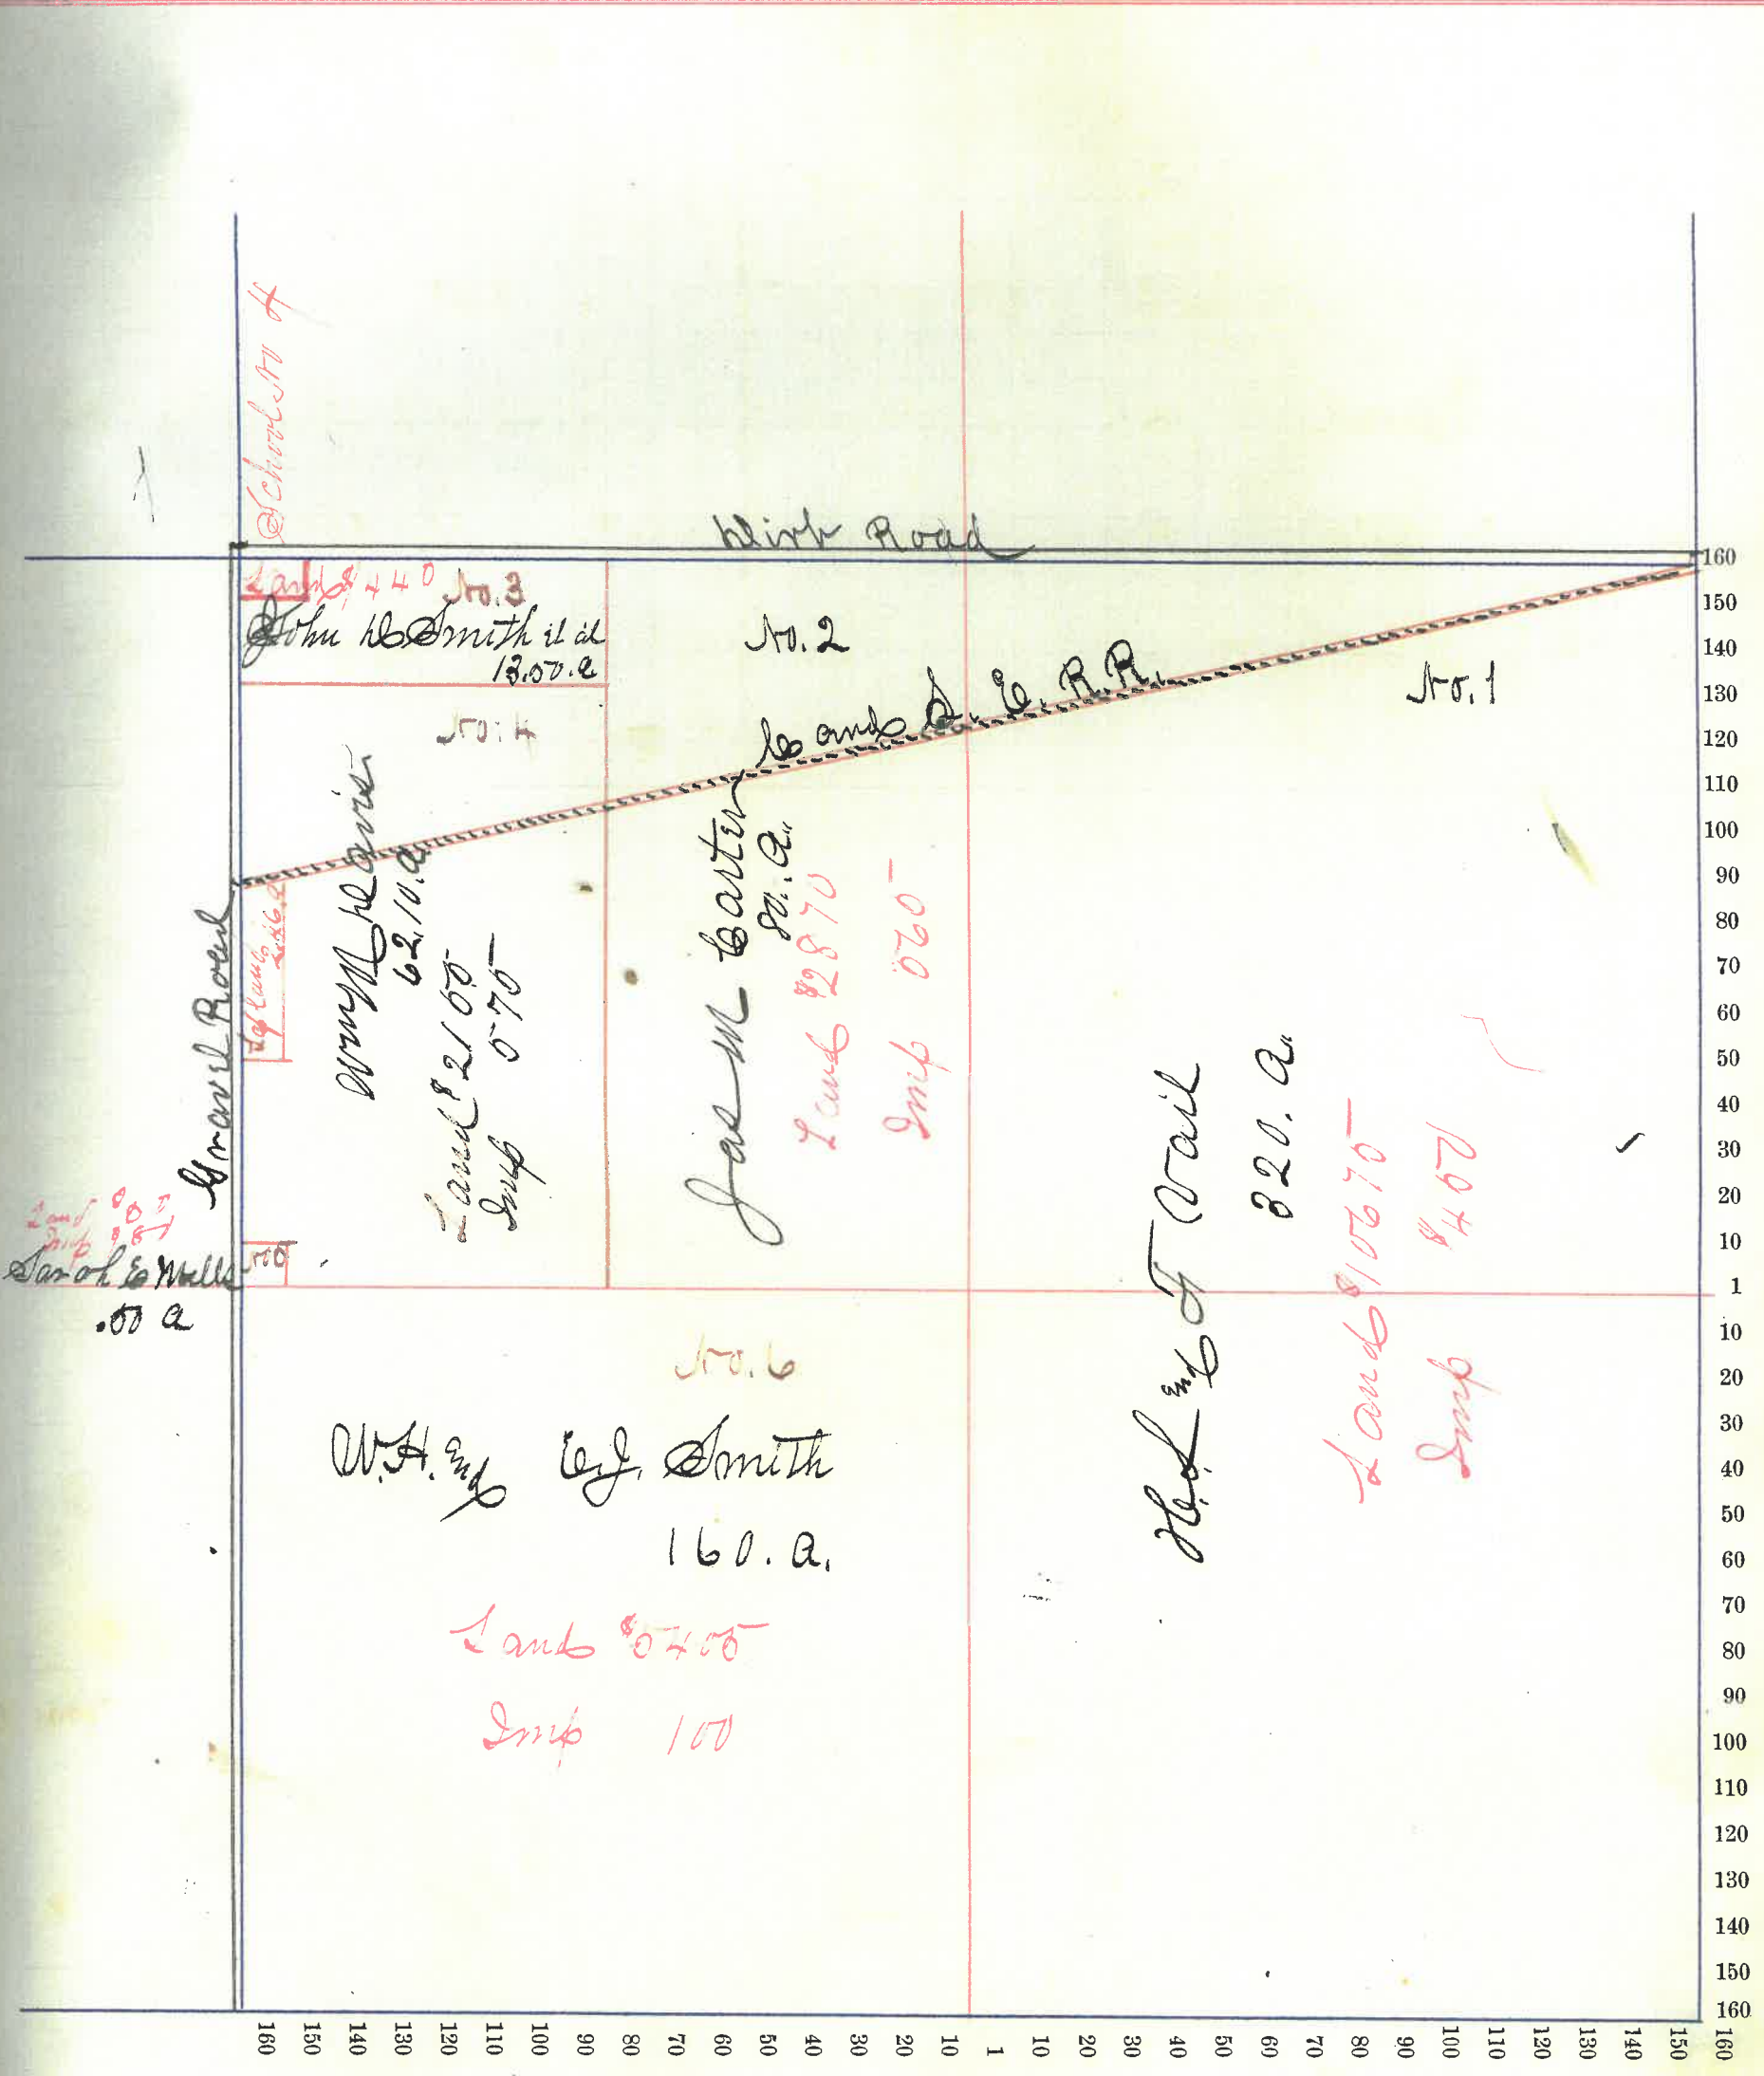 School No 4
Dirt Road
Land $440
No. 3
John D Smith et al
13.50.a
No. 2
No. 1
C and S. E. R.R.
No. 4
Wm M Davis
62.10.a
Land $2155
Imp 575
Jas M Carter
80. a.
Land $2870
Imp 565
H. S. and F T Vail
320. a.
Land $10675
Imp $450
Gravel Road
Land
Imp
Sarah E Mills
.50 a
No 5
No. 6
W. H. and C. J. Smith
160. a.
Land $5405
Imp 100
160
150
140
130
120
110
100
90
80
70
60
50
40
30
20
10
1
10
20
30
40
50
60
70
80
90
100
110
120
130
140
150
160
160 150 140 130 120 110 100 90 80 70 60 50 40 30 20 10 1 10 20 30 40 50 60 70 80 90 100 110 120 130 140 150 160